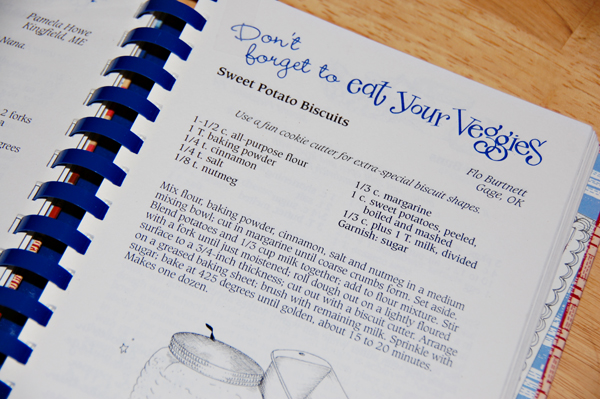 Pamela Howe
Kingfield, ME
Nana.
2 forks
Don't
forget to eat Your Veggies
Sweet Potato Biscuits
Use a fun cookie cutter for extra-special biscuit shapes.
Flo Burtnett
Gage, OK
1-1/2 c. all-purpose flour
1 T. baking powder
1/4 t. cinnamon
1/4 t. salt
1/8 t. nutmeg
1/3 c. margarine
1 c. sweet potatoes, peeled,
boiled and mashed
1/3 c. plus 1 T. milk, divided
Garnish: sugar
Mix flour, baking powder, cinnamon, salt and nutmeg in a medium
mixing bowl; cut in margarine until coarse crumbs form. Set aside.
Blend potatoes and 1/3 cup milk together; add to flour mixture. Stir
with a fork until just moistened; roll dough out on a lightly floured
surface to a 3/4-inch thickness; cut out with a biscuit cutter. Arrange
on a greased baking sheet; brush with remaining milk. Sprinkle with
sugar; bake at 425 degrees until golden, about 15 to 20 minutes.
Makes one dozen.